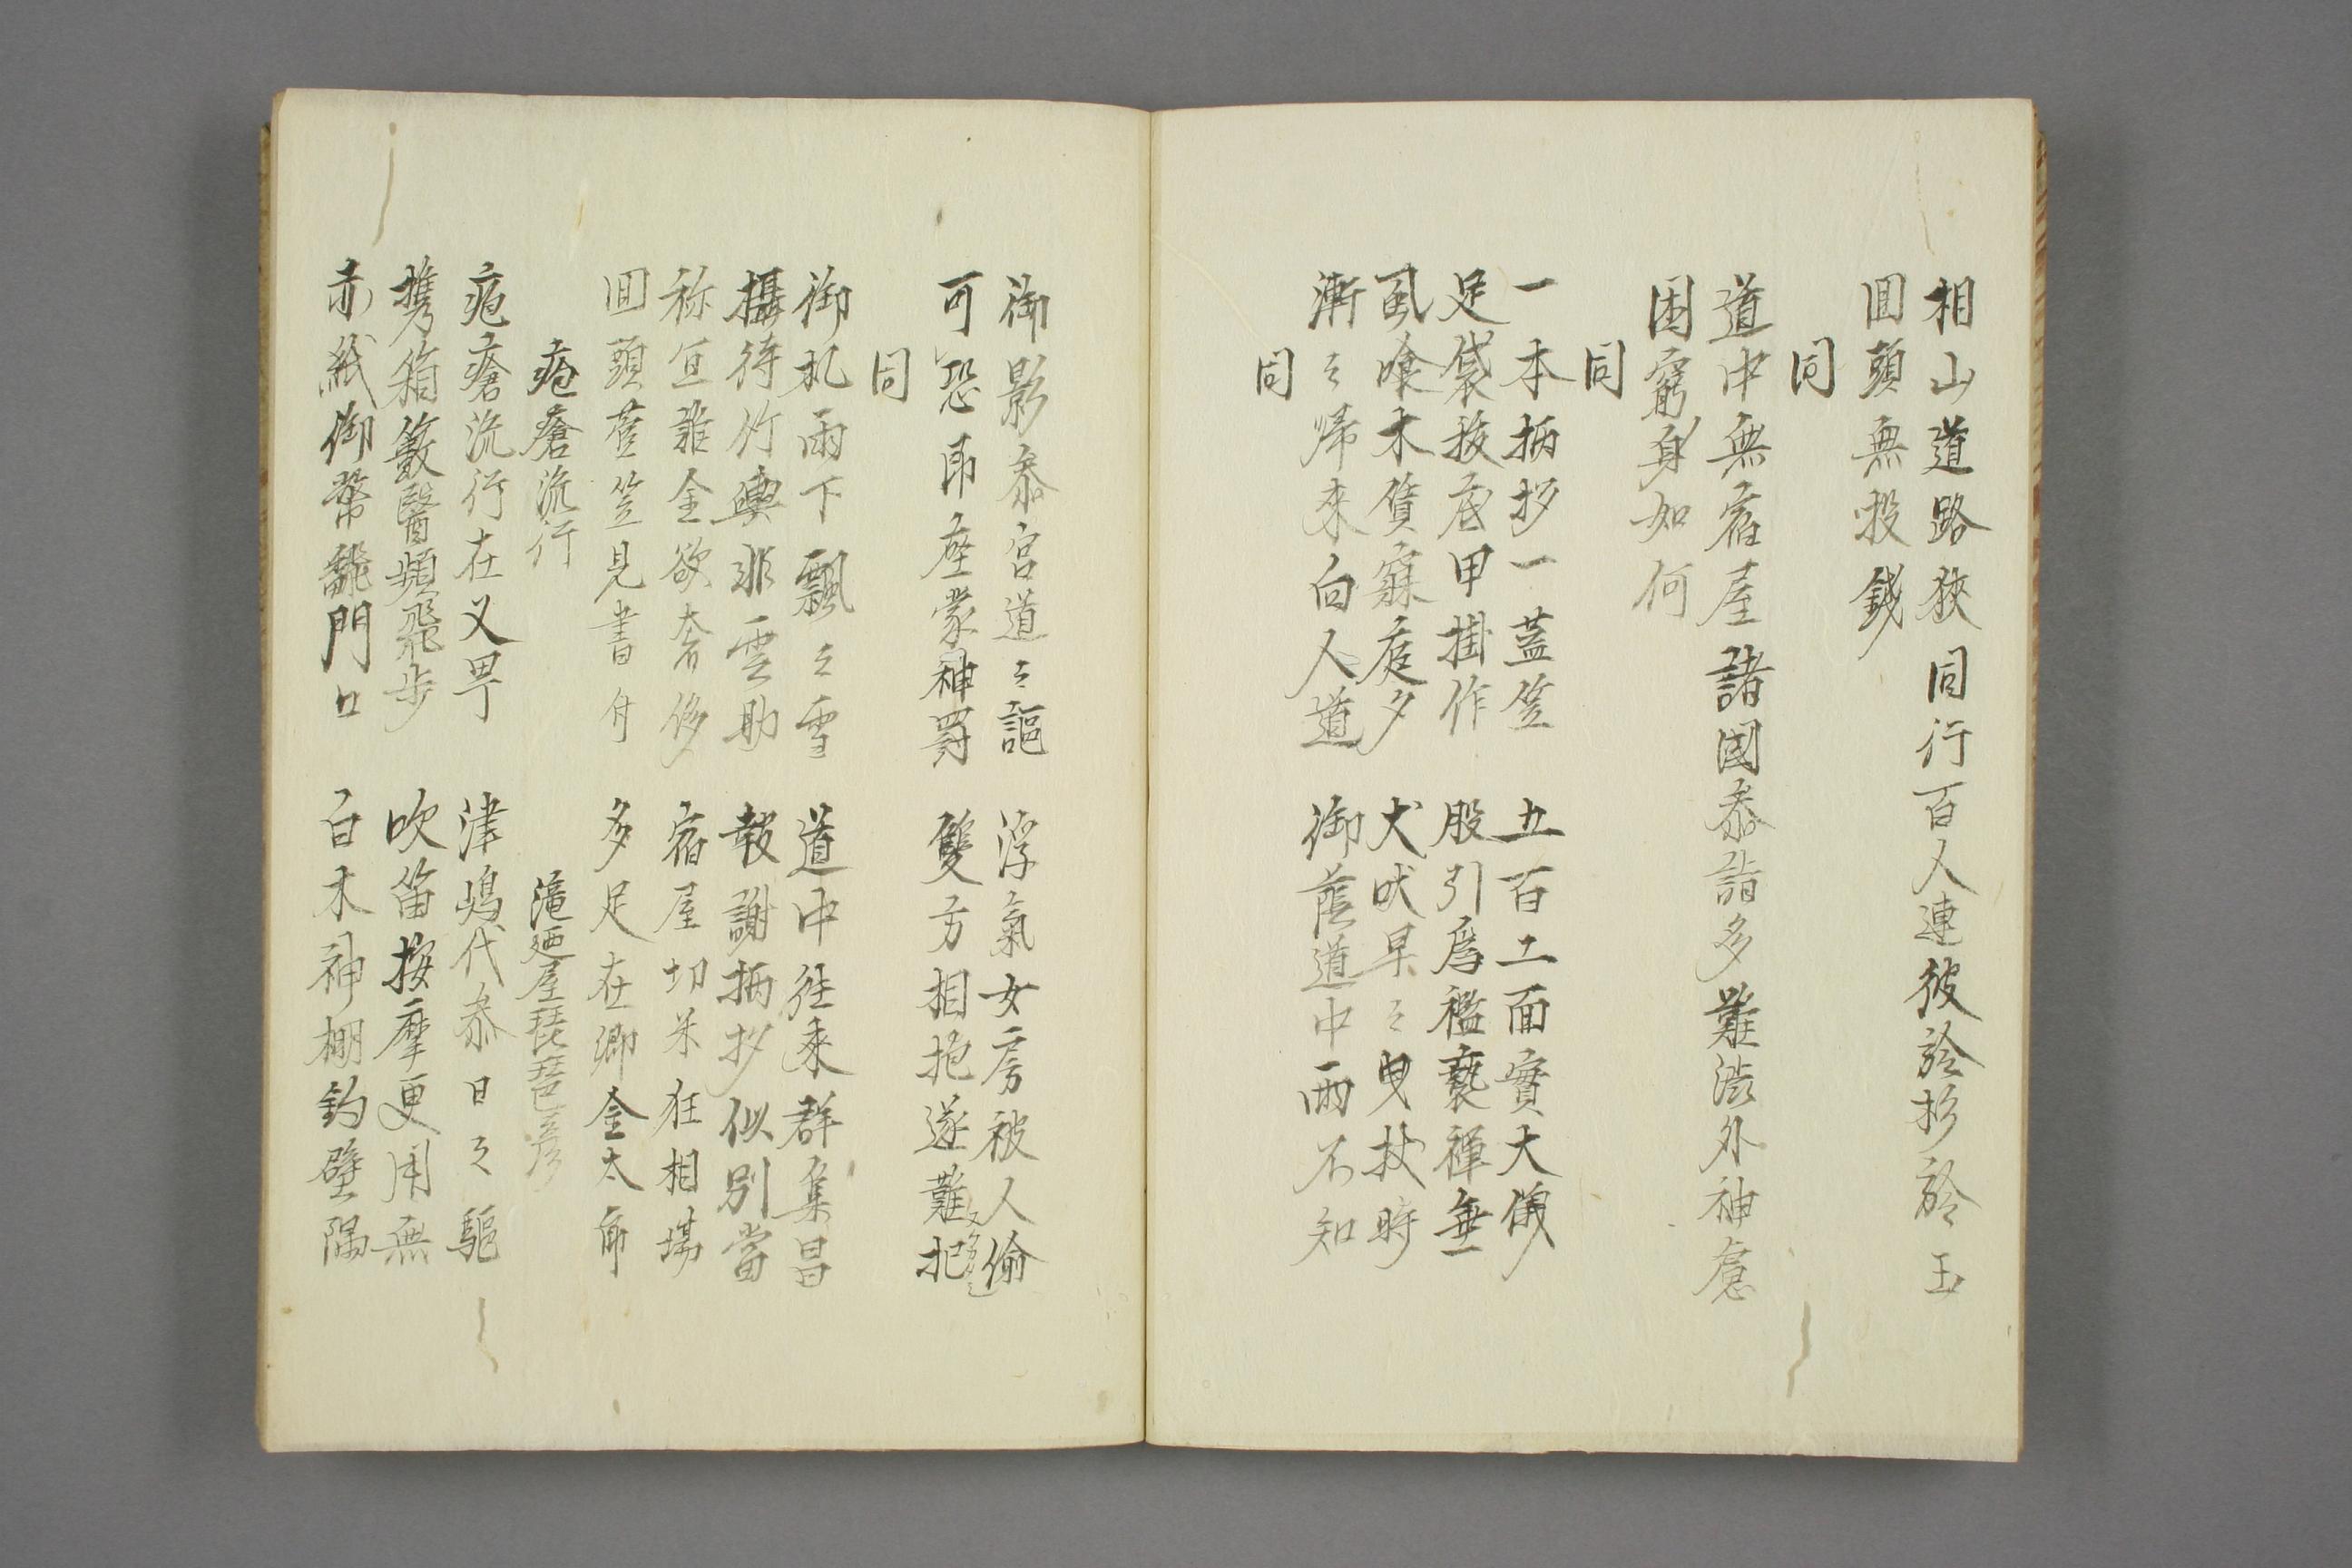 相山道路狹同行百人連彼於杉於玉
回頭無投錢
同
道中無宿屋諸國叅詣多難澁外神慮
困窮身如何
同
一本柄杓一蓋笠　五百工面實大儀
足袋拔底甲掛作　股引爲襤褻褌無
風喰木賃寐庭夕　犬吠早々曳杖時
漸々歸來白人道　御蔭道中雨不知
同
御影叅宮道々謳　浮氣女房被人偷
可恐即座蒙神罰　雙方相抱遂難犯
同
御札雨下飄々雪　道中往來群集昌
攝待竹輿非雲助　報謝柄杓似別當
称宜雜金欲奢侈　宿屋切米狂相場
回頭菅笠見書付　多足在鄉金太郎
疱瘡流行　滬廼屋琵琶彥
疱瘡流行在又罕　津嶋代叅日々驅
携箱籔醫頻飛步　吹笛按摩更用無
赤紙御幣翻門口　白木神棚釣壁隅